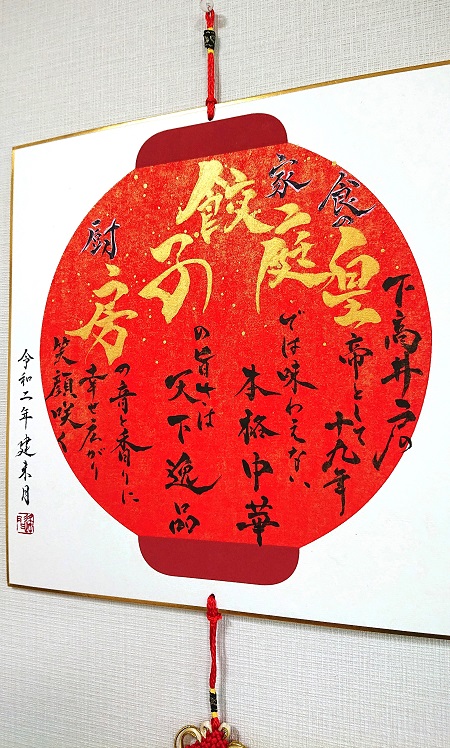 下高井戸の
食の皇帝として
十九年
家庭では味わえない
本格中華
餃子の旨さは
天下逸品
厨房の音と香りに
幸せ広がり
笑顔咲く
令和二年 建未月